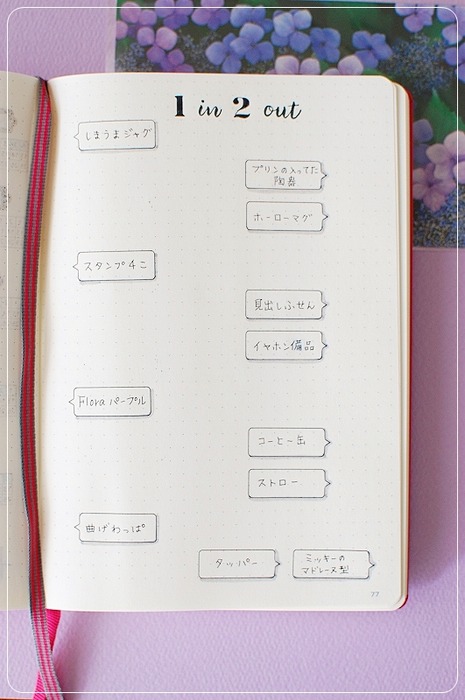 1 in 2 out
しまうまジャグ
プリンの入ってた
陶器
ホーローマグ
スタンプ4こ
見出しふせん
イヤホン備品
Flora パープル
コーヒー缶
ストロー
曲げわっぱ
タッパー
ミッキーの
マドレーヌ型
77